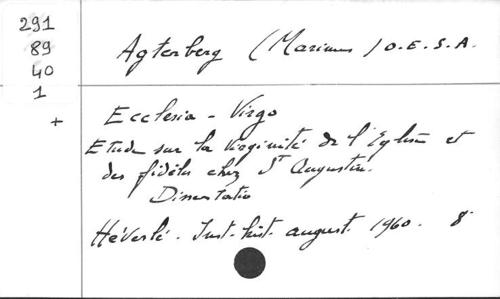 291
89
40
1
+
Agterberg (Marinus) O.E.S.A.
Ecclesia - Virgo
Etude sur la Virginité de l'Eglise et
des fidèles chez St Augustin.
Dissertatio
Héverlé. Inst. hist. august. 1960. 8°